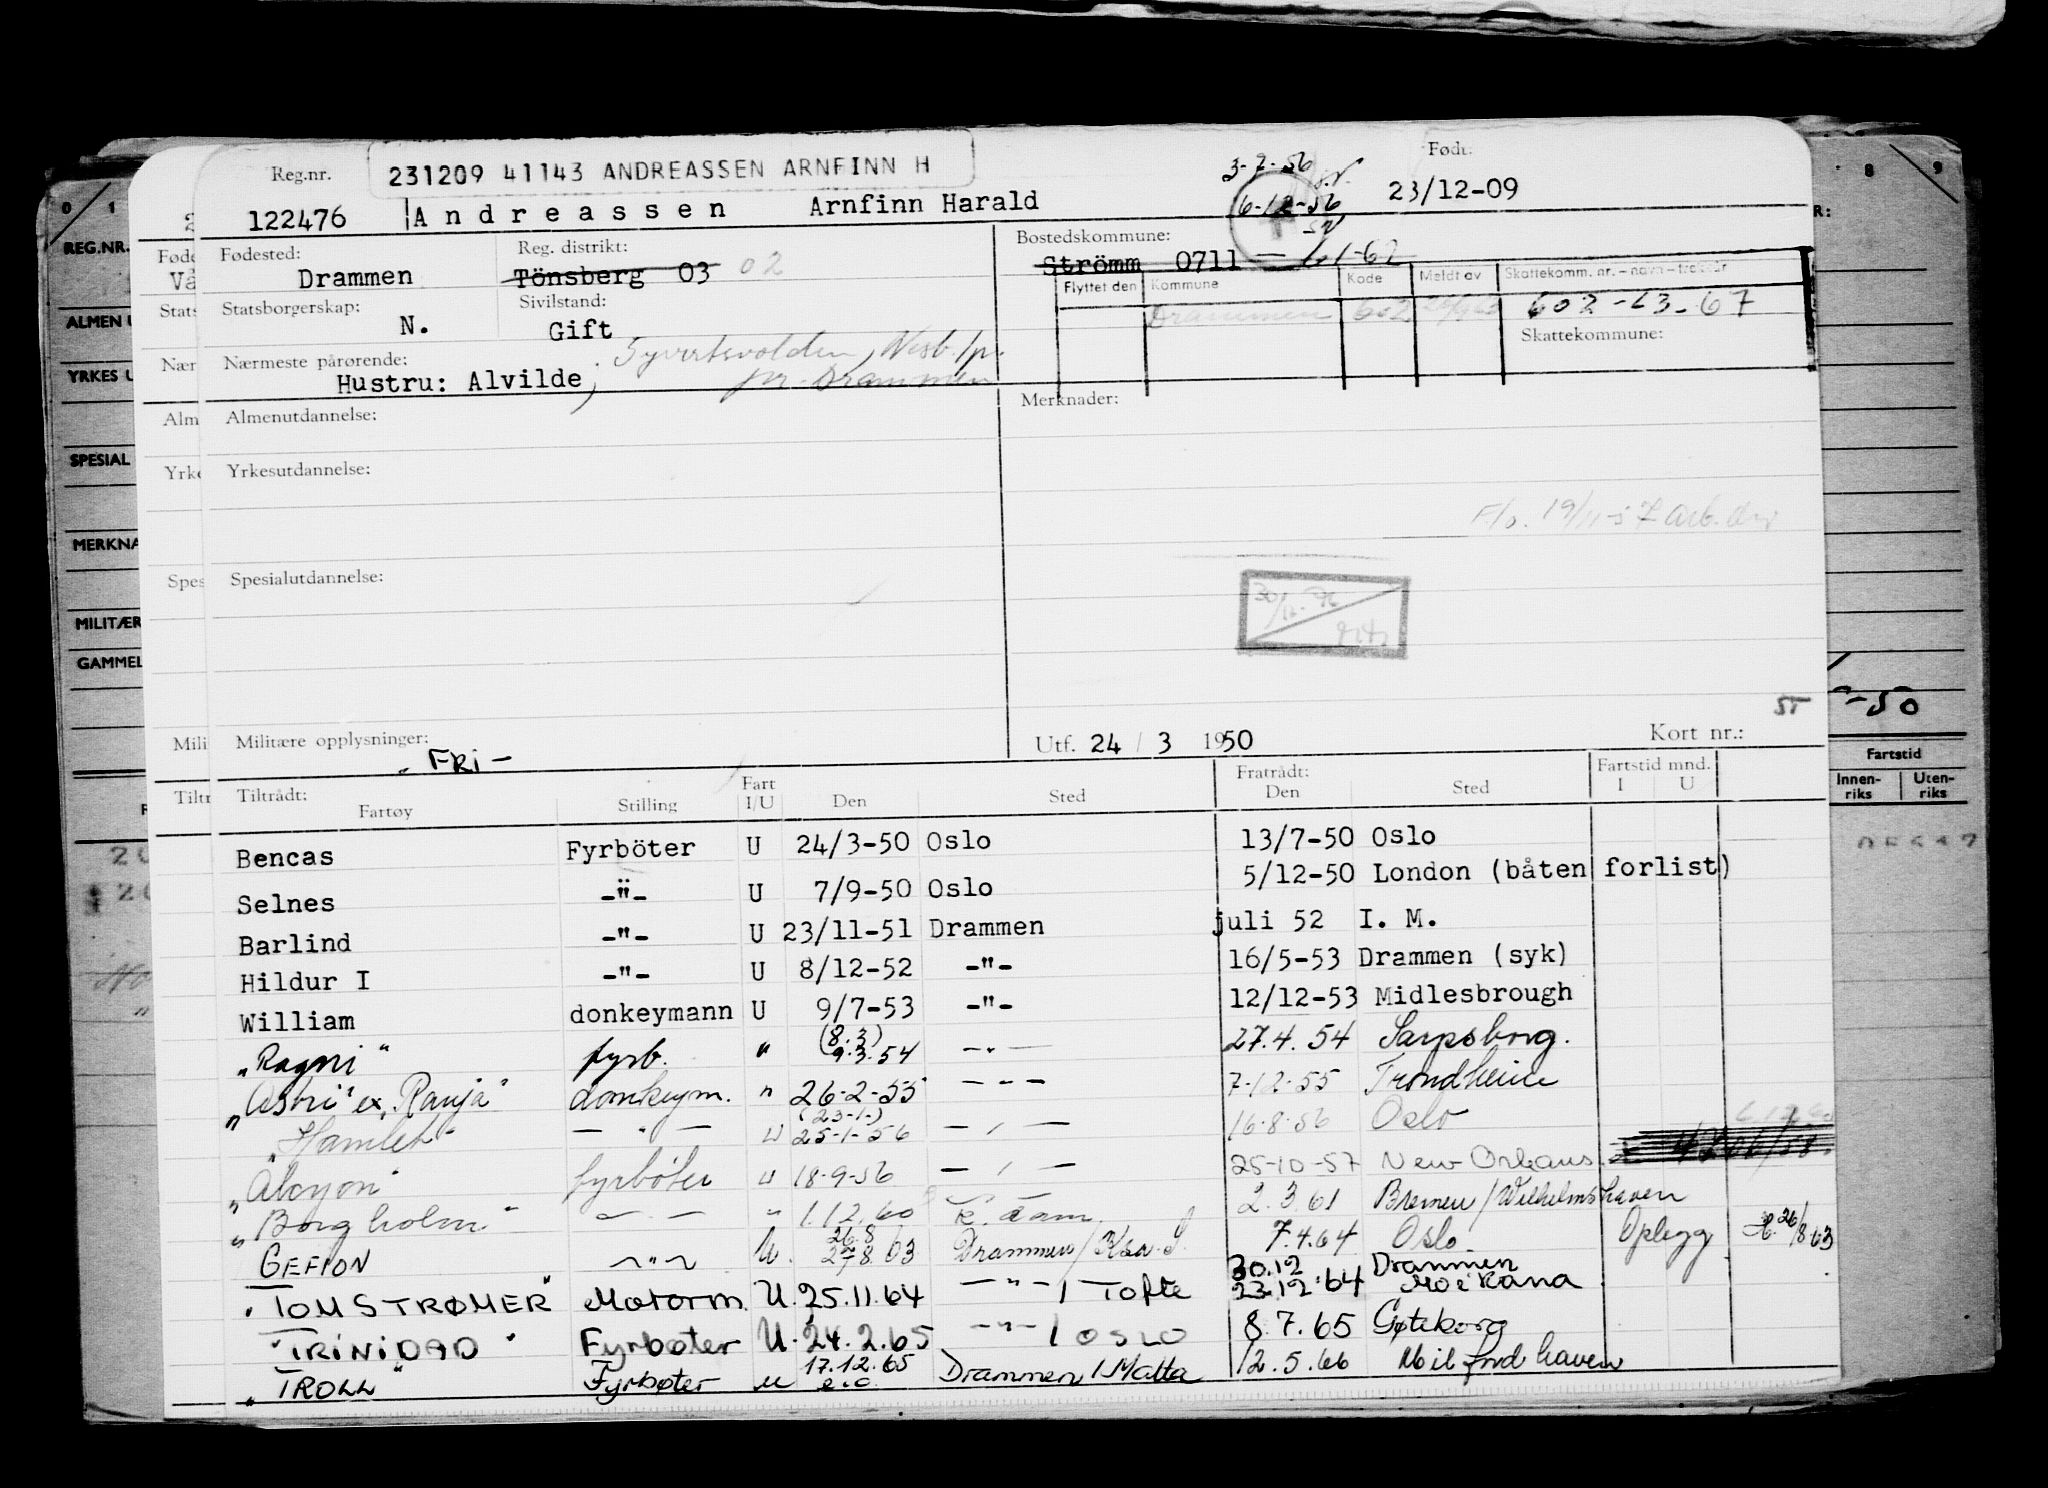 Reg.nr.
231209 41143 ANDREASSEN ARNFINN H
3-7-56
Født:
122476 Andreassen Arnfinn Harald
6-12-56
23/12-09
Fødested:
Drammen
Reg. distrikt:
Tönsberg 03 02
Bostedskommune:
Strömm 0711
Flyttet den Kommune Kode Meldt av Skattekomm. nr. - navn - trekkår
Statsborgerskap:
N.
Sivilstand:
Gift
Drammen 602 602-63-67
Skattekommune:
Nærmeste pårørende:
Hustru: Alvilde;
pr. Drammen
Almenutdannelse:
Merknader:
Yrkesutdannelse:
Spesialutdannelse:
Militære opplysninger:
- FRI -
Utf. 24 / 3 1950
Kort nr.:
Tiltrådt:
Fartøy Stilling Fart I/U Den Sted
Fratrådt:
Den Sted
Fartstid mnd.
I U
Bencas Fyrböter U 24/3-50 Oslo 13/7-50 Oslo
Selnes -"- U 7/9-50 Oslo 5/12-50 London (båten forlist)
Barlind -"- U 23/11-51 Drammen juli 52 I. M.
Hildur I -"- U 8/12-52 -"- 16/5-53 Drammen (syk)
William donkeymann U 9/7-53 -"- 12/12-53 Midlesbrough
"Ragni" fyrb. " (8.3) 9.3.54 -"- 27.4.54 Sarpsborg.
"Astri" ex "Ranja" donkeym. " 26-2-55 -"- 7-12-55 Trondheim
"Hamlet" -"- U (23-1-) 25-1-56 -"- 16-8-56 Oslo
"Alcyon" fyrböter U 18-9-56 -"- 25-10-57 New Orleans
"Borgholm" -"- " 1.12.60 2.3.61 Bremen/Wilhelmshaven
GEFION -"- U. 26.8 27.8.63 Drammen/ 7.4.64 Oslo Oplegg 26/8 63
"TOM STRØMER" Motorm. U. 25.11.64 -"- / Tofte 30.12 23.12.64 Drammen
"TRINIDAD" Fyrbøter U. 24.2.65 -"- / OSLO 8.7.65 Gøteborg
"TROLL" Fyrbøter U 17.12.65 Drammen / Malta 12.5.66 Milfordhaven
REG.NR.
ALMEN
YRKES
SPESIAL
MERKNA
MILITÆR
GAMMEL
Fartstid
Innen-riks Uten-riks